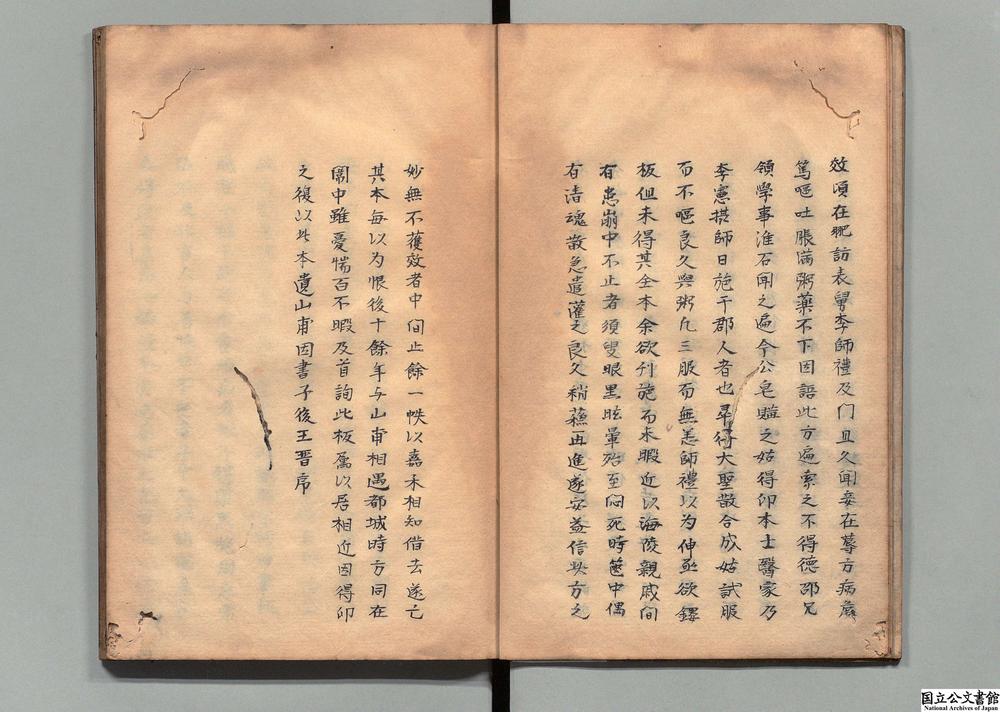 效頃在肥訪表舅李師禮及门且久聞妾在蓐方病歲
篤嘔吐脹滿粥藥不下因語此方遍索之不得德邵兄
領學事淮右聞之遍令公皂賍之姑得印本士醫家乃
李憲拱師日施于郡人者也尋得大聖散合成姑試服
而不嘔良久與粥凢三服而無恙師禮以为伸亟欲鏤
板但未得其全本余欲刊施而未暇近以海陵親戚间
有患崩中不止者須臾眼黑眩暈殆至悶死時篋中偶
有清魂散急遣灌之良久稍蘓再進遂安益信此方之
妙無不獲效者中间止餘一帙以嘉未相知借去遂亡
其本每以为恨後十餘年与山甫相遇都城時方同在
闈中雖憂惴百不暇及首詢此板属以居相近因得印
之復以此本遺山甫因書于後王晋序
国立公文書館
National Archives of Japan